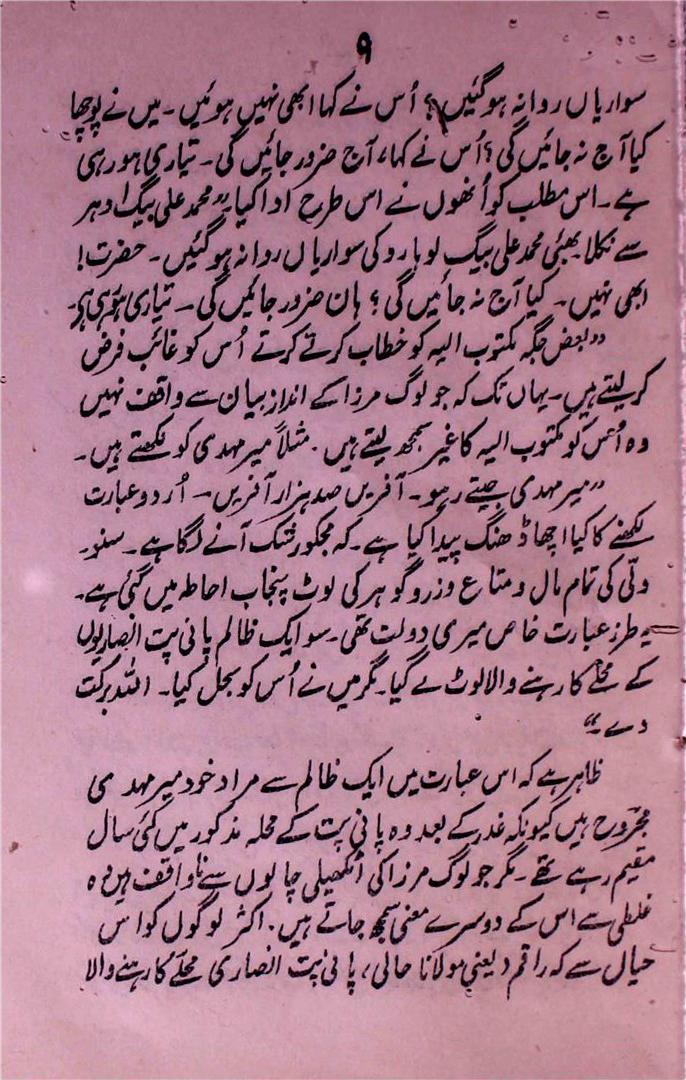 ۹
سواریاں روانہ ہوگئیں؟ اُس نے کہا ابھی نہیں ہوئیں۔ میں نے پوچھا
کیا آج نہ جائیں گی؟ اُس نے کہا، آج ضرور جائیں گی۔ تیاری ہو رہی
ہے۔ اس مطلب کو اُنھوں نے اس طرح ادا کیا ”محمد علی بیگ اودھر
سے نکلا بھئی محمد علی بیگ لوہارو کی سواریاں روانہ ہوگئیں۔ حضرت!
ابھی نہیں۔ کیا آج نہ جائیں گی؟ ہان ضرور جائیں گی۔ تیاری ہو رہی ہے۔
”بعض جگہ مکتوب الیہ کو خطاب کرتے کرتے اُس کو غائب فرض
کر لیتے ہیں۔ یہاں تک کہ جو لوگ مرزا کے انداز بیان سے واقف نہیں
وہ اُس کو مکتوب الیہ کا غیر سمجھ لیتے ہیں۔ مثلاً میر مہدی کو لکھتے ہیں۔
”میر مہدی جیتے رہو۔ آفریں صد ہزار آفریں۔ اُردو عبارت
لکھنے کا کیا اچھا ڈھنگ پیدا کیا ہے۔ کہ مجکو رشک آنے لگا ہے۔ سنو۔
دلّی کی تمام مال و متاع و زر و گوہر کی لوٹ پنجاب احاطہ میں گئی ہے۔
یہ طرز عبارت خاص میری دولت تھی۔ سو ایک ظالم پانی پت انصاریوں
کے محلے کا رہنے والا لوٹ لے گیا۔ مگر میں نے اُس کو بحل کیا۔ اللہ برکت
دے۔“
ظاہر ہے کہ اس عبارت میں ایک ظالم سے مراد خود میر مہدی
مجروح ہیں کیونکہ غدر کے بعد وہ پانی پت کے محلہ مذکور میں کئی سال
مقیم رہے تھے۔ مگر جو لوگ مرزا کی اٹکھیلی چالوں سے ناواقف ہیں وہ
غلطی سے اس کے دوسرے معنی سمجھ جاتے ہیں۔ اکثر لوگوں کو اس
خیال سے کہ راقم (یعنی مولانا حالی) پانی پت انصاری محلّے کا رہنے والا